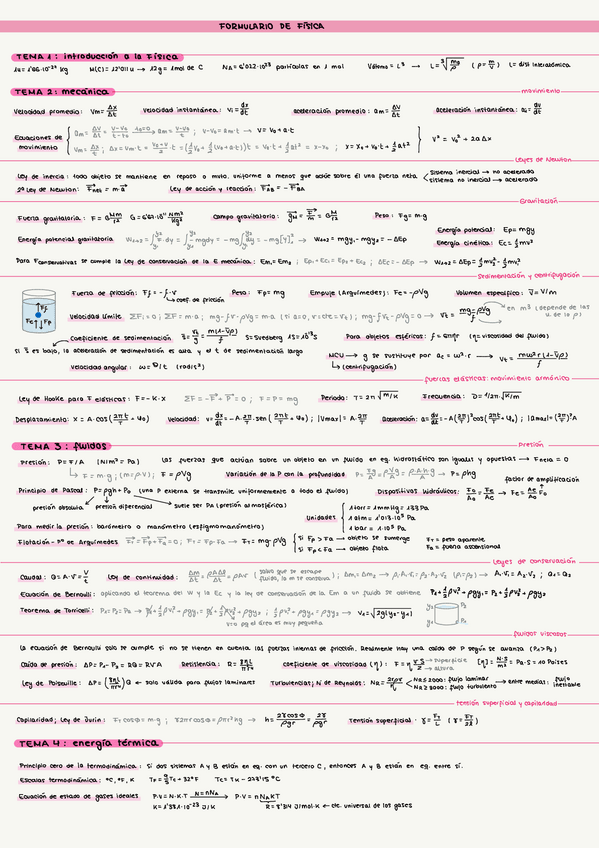 FORMULARIO DE FÍSICA
TEMA 1: introducción a la Física
1u = 1'66·10⁻²⁷ kg M(C) = 12'011 u → 12g = 1mol de C NA = 6'022·10²³ partículas en 1 mol Vátomo = L³ → L = ³√(m₀/ρ) (ρ = m/V) L = dist interatómica
TEMA 2: mecánica
movimiento
Velocidad promedio: Vm = Δx/Δt Velocidad instantánea: Vi = dx/dt aceleración promedio: am = ΔV/Δt aceleración instantánea: ai = dv/dt
Ecuaciones de movimiento
V = V₀ + a·t
x = x₀ + V₀·t + ½at²
V² = V₀² + 2aΔx
Leyes de Newton
Ley de inercia: todo objeto se mantiene en reposo o mvto. uniforme a menos que actúe sobre él una fuerza neta
Sistema inercial → no acelerado
sistema no inercial → acelerado
2ª Ley de Newton: FNET = m·a Ley de acción y reacción: FAB = -FBA
Gravitación
Fuerza gravitatoria: F = G Mm/r² G = 6'67·10⁻¹¹ Nm²/kg² campo gravitatorio: gM = F/m = G M/r² Peso: Fg = m·g
Energía potencial: Ep = mgy
Energía potencial gravitatoria W₁→₂ = mgy₁ - mgy₂ = -ΔEp Energía cinética: Ec = ½mv²
Para Fconservativas se cumple la Ley de conservación de la E mecánica: Em₁ = Em₂ ; Ep₁ + Ec₁ = Ep₂ + Ec₂ ; ΔEc = -ΔEp → W₁→₂ = ΔEp = ½mv₂² - ½mv₁²
Sedimentación y centrifugación
Fuerza de fricción: Ff = -f·v Peso: Fp = mg Empuje (Arquímedes): Fe = -ρVg Volumen específico: V = V/m
coef. de fricción
Velocidad límite ΣF = 0 ; ΣF = m·a ; → Vt = (mg - ρVg)/f
en m³ (depende de las u. de la ρ)
Coeficiente de sedimentación S = Svedberg 1S = 10⁻¹³s Para objetos esféricos: f = 6πηr (η = viscosidad del fluido)
si S es bajo, la aceleración de sedimentación es baja y el t de sedimentación largo MCU → g se sustituye por ac = ω²·r → Vt = mω²r(1-Vρ)/f
(centrifugación)
Velocidad angular: ω = θ/t (rad/s)
fuerzas elásticas: movimiento armónico
Ley de Hooke para F elásticas: F = -K·X Periodo: T = 2π√(m/K) Frecuencia: υ = 1/2π·√(K/m)
Desplazamiento: X = A·cos(2πt/T + φ₀) Velocidad: v = dx/dt = -A·2π/T·sen(2πt/T + φ₀) ; |Vmax| = A·2π/T Aceleración: a = dv/dt = -A(2π/T)²cos(2πt/T + φ₀) ; |amax| = (2π/T)²A
TEMA 3: fluidos
Presión
Presión: P = F/A (N/m² = Pa) Las fuerzas que actúan sobre un objeto en un fluido en eq. hidrostático son iguales y opuestas → Fneta = 0
F = m·g ; (m = ρ·V) ; F = ρVg Variación de la P con la profundidad → P = ρhg
factor de amplificación
Principio de Pascal: P = ρgh + P₀ (una P externa se transmite uniformemente a todo el fluido) Dispositivos hidráulicos:
presión absoluta presión diferencial suele ser Pa (presión atmosférica)
Para medir la presión: barómetro o manómetro (esfigmomanómetro)
Unidades
1 torr = 1 mmHg = 133 Pa
1 atm = 1'013·10⁵ Pa
1 bar = 1·10⁵ Pa
Flotación - Pº de Arquímedes FT = mg - ρVg
si Fp > Fa → objeto se sumerge
si Fp < Fa → objeto flota
FT = peso aparente
Fa = fuerza ascensional
Leyes de conservación
Caudal: Q = A·V = V/t Ley de continuidad: A₁·V₁ = A₂·V₂ ; Q₁ = Q₂
Ecuación de Bernoulli: aplicando el teorema del W y la Ec y la ley de conservación de la Em a un fluido se obtiene P₁ + ½ρv₁² + ρgy₁ = P₂ + ½ρv₂² + ρgy₂
Teorema de Torricelli: P₁ = P₂ = P₀ → V₂ = √(2g(y₂ - y₁))
v = 0 pq el área es muy pequeña
fluidos viscosos
La ecuación de Bernoulli solo se cumple si no se tienen en cuenta las fuerzas internas de fricción. Realmente hay una caída de P según se avanza (P₁ > P₂)
Caída de presión: ΔP = P₁ - P₂ = RQ = RVA Resistencia: R = 8ηL/πr⁴ coeficiente de viscosidad (η): F = η vS/z → superficie → altura [η] = N·s/m² = Pa·s = 10 Poises
Ley de Poiseuille: ΔP = (8ηL/πr⁴)Q ← solo válida para flujos laminares Turbulencias; Nº de Reynolds: NR = 2r̄vρ/η
NR ≤ 2000: flujo laminar
NR ≥ 3000: flujo turbulento
→ entre medias: flujo inestable
tensión superficial y capilaridad
Capilaridad; Ley de Jurin: FT cosθ = m·g ; γ2πr cosθ = ρπr²hg → h = 2γcosθ/ρgr = 2γ/ρgr Tensión superficial: γ = FT/L (γ = FT/2L)
TEMA 4: energía térmica
Principio cero de la termodinámica: Si dos sistemas A y B están en eq. con un tercero C, entonces A y B están en eq. entre sí.
Escalas termodinámica: ºC, ºF, K TF = 9/5 Tc + 32ºF Tc = TK - 273'15 ºC
Ecuación de estado de gases ideales P·V = N·K·T N = nNA → P·V = nNAKT
K = 1'381·10⁻²³ J/K R = 8'314 J/mol·K ← cte. universal de los gases